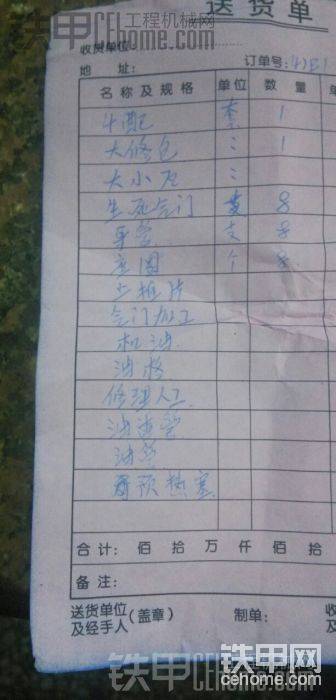 铁甲 工程机械网
cehome.com
送货单
收货单位:
地 址: 订单号:
名称及规格 单位 数量
4配 套 1
大修包 〃 1
大小瓦 〃
生死气门 8
导管 支 8
座圈 个 8
止推片
气门加工
机油
油格
修理人工
油
油
预热塞
合计: 佰 拾 万 仟 佰 拾
备注:
送货单位
及经手人(盖章) 制单: 收
及
铁甲 工程机械网
cehome.com
铁甲网
cehome.com